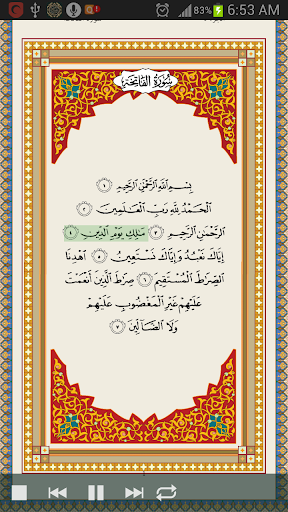 6:53 AM
سُورَةُ الفَاتِحَةِ
بِسْمِ اللَّهِ الرَّحْمَٰنِ الرَّحِيمِ ١
الْحَمْدُ لِلَّهِ رَبِّ الْعَالَمِينَ ٢
الرَّحْمَٰنِ الرَّحِيمِ ٣ مَالِكِ يَوْمِ الدِّينِ ٤
إِيَّاكَ نَعْبُدُ وَإِيَّاكَ نَسْتَعِينُ ٥ اهْدِنَا
الصِّرَاطَ الْمُسْتَقِيمَ ٦ صِرَاطَ الَّذِينَ أَنْعَمْتَ
عَلَيْهِمْ غَيْرِ الْمَغْضُوبِ عَلَيْهِمْ
وَلَا الضَّالِّينَ ٧